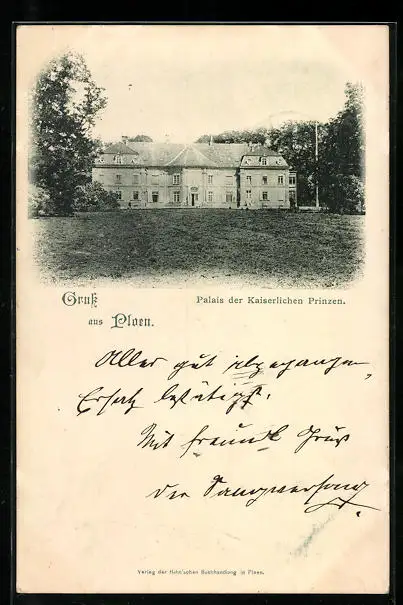 Gruß
aus Ploen.
Palais der Kaiserlichen Prinzen.
Alles gut
Ersatz bestätigt.
Mit freundl Gruß
Verlag der Hahn'schen Buchhandlung in Ploen.